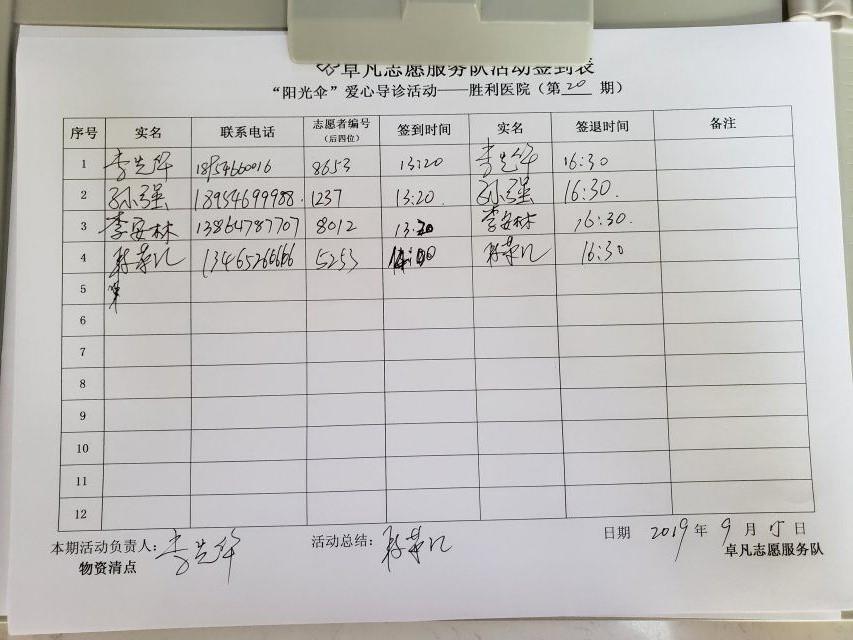 卓凡志愿服务队活动签到表
“阳光伞”爱心导诊活动——胜利医院（第 20 期）
序号 实名 联系电话 志愿者编号（后四位） 签到时间 实名 签退时间 备注
1 李先华 8653 13:20 李先华 16:30
2 孙强 18954699988 1237 13:20 孙强 16:30
3 李安林 13864787707 8012 13:20 李安林 16:30
4 13465266666 5253 14:00 16:30
5
6
7
8
9
10
11
12
本期活动负责人：李先华 活动总结： 日期 2019 年 9 月 日
物资清点 卓凡志愿服务队